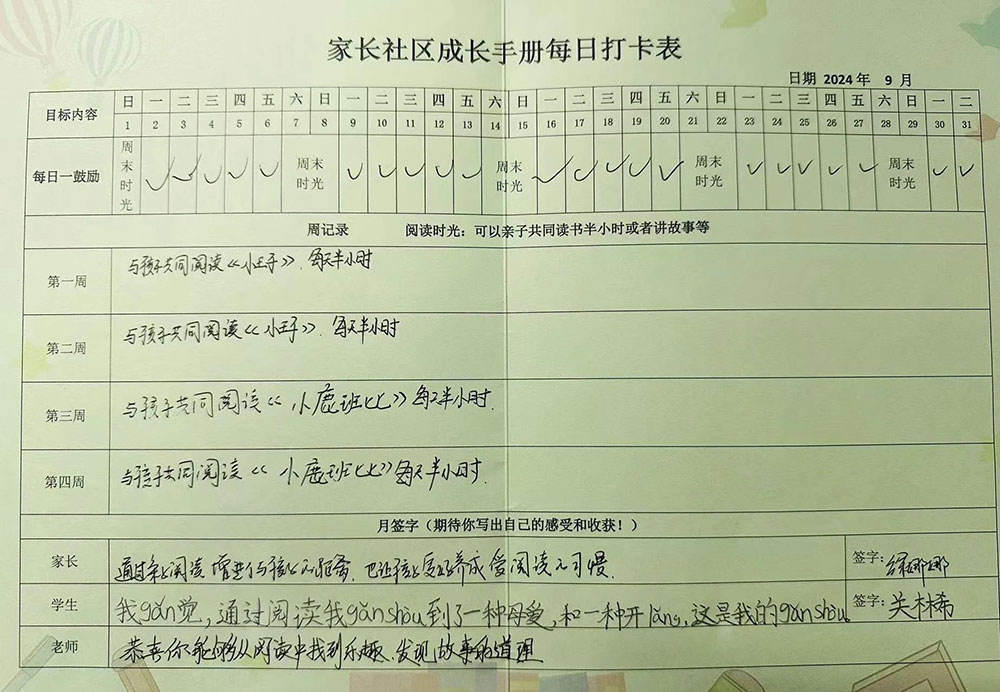 家长社区成长手册每日打卡表
日期 2024年 9月
目标内容 日 一 二 三 四 五 六 日 一 二 三 四 五 六 日 一 二 三 四 五 六 日 一 二 三 四 五 六 日 一 二
1 2 3 4 5 6 7 8 9 10 11 12 13 14 15 16 17 18 19 20 21 22 23 24 25 26 27 28 29 30 31
每日一鼓励 周末时光 周末时光 周末时光 周末时光 周末时光
周记录 阅读时光：可以亲子共同读书半小时或者讲故事等
第一周 与孩子共同阅读《小王子》. 每天半小时
第二周 与孩子共同阅读《小王子》. 每天半小时
第三周 与孩子共同阅读《小鹿班比》每天半小时.
第四周 与孩子共同阅读《小鹿班比》每天半小时.
月签字（期待你写出自己的感受和收获！）
家长 通过亲子阅读 增进了与孩子的距离, 也让孩子更好养成爱阅读的习惯. 签字:
学生 我gǎn觉，通过阅读我gǎnshòu到了一种母爱，和一种开lǎng，这是我的gǎnshòu 签字: 关林希
老师 恭喜你能够从阅读中找到乐趣、发现故事的道理